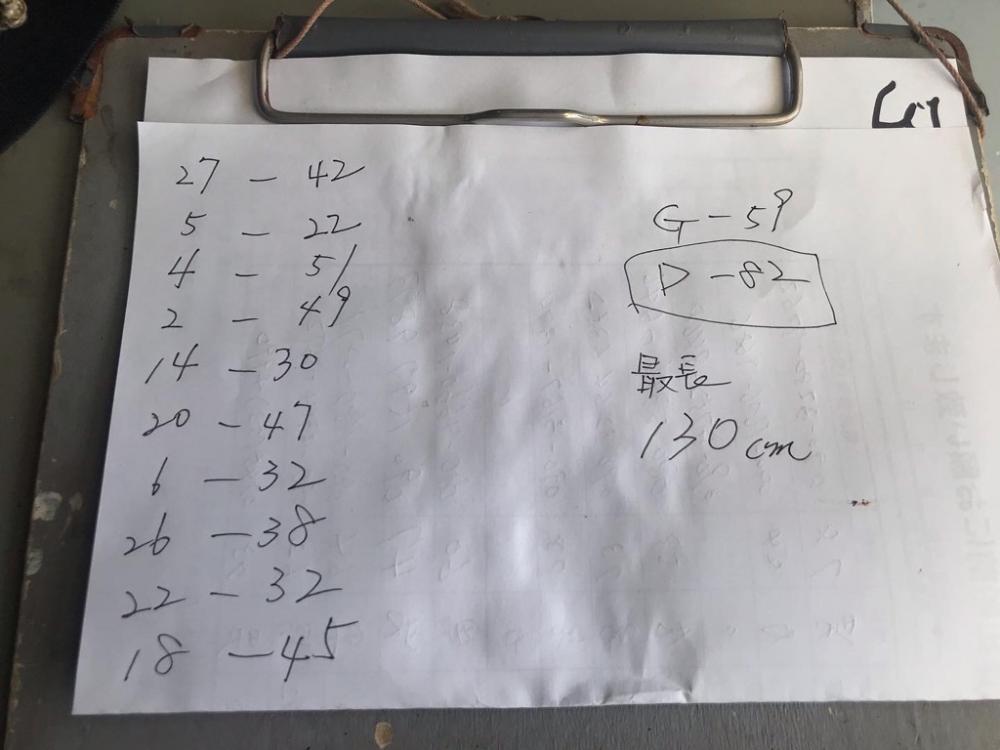 27 - 42
5 - 22
4 - 51
2 - 49
14 - 30
20 - 47
6 - 32
26 - 38
22 - 32
18 - 45
G - 59
D - 82
最長
130cm